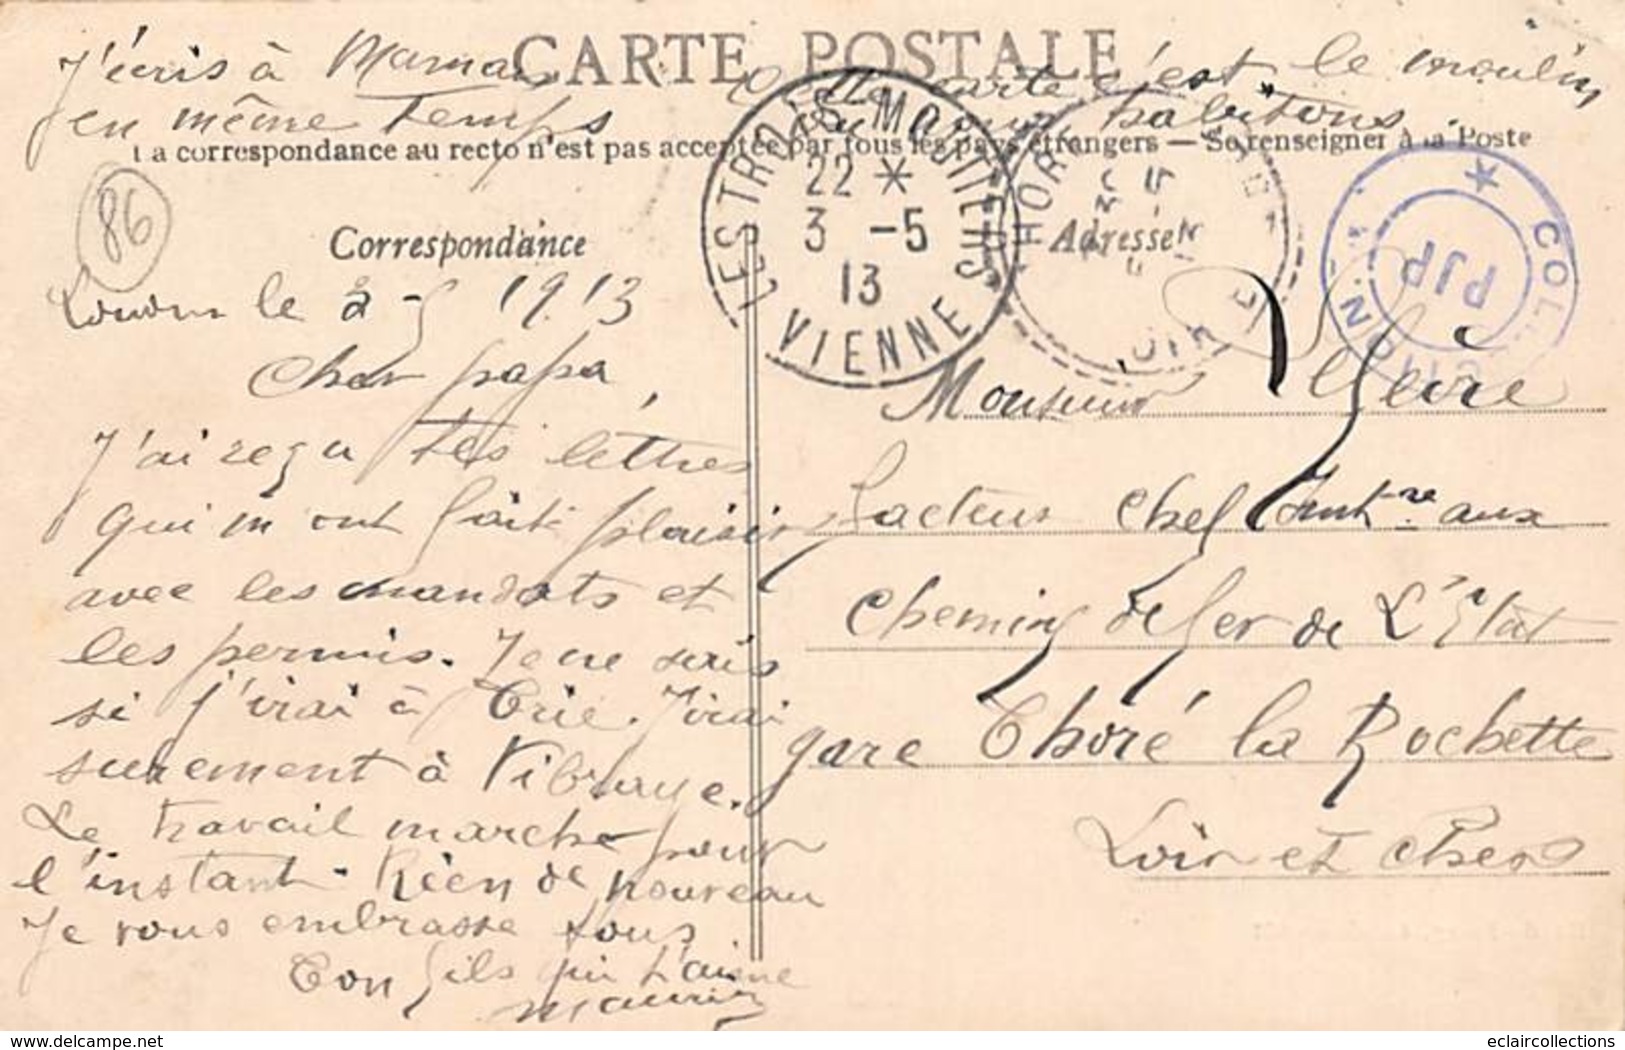 CARTE POSTALE
J'écris à Maman
en même temps
Cette carte c'est le moulin
où nous habitons
La correspondance au recto n'est pas acceptée par tous les pays étrangers — Se renseigner à la Poste
86
Correspondance
Adresse
LES TROIS-MOUTIERS
22 *
3 -5
13
VIENNE
COLLECTION
PJP
le 2-5 1913
Cher papa,
J'ai reçu tes lettres
qui m'ont fait plaisir
avec les mandats et
les permis. Je ne sais
si j'irai à Trie. J'irai
surement à Vibraye.
Le travail marche pour
l'instant. Rien de nouveau
Je vous embrasse tous
Ton fils qui t'aime
Maurice
Monsieur
facteur chef aux
Chemins de fer de L'Etat
gare Thoré la Rochette
Loir et Cher
delcampe.net
eclaircollections